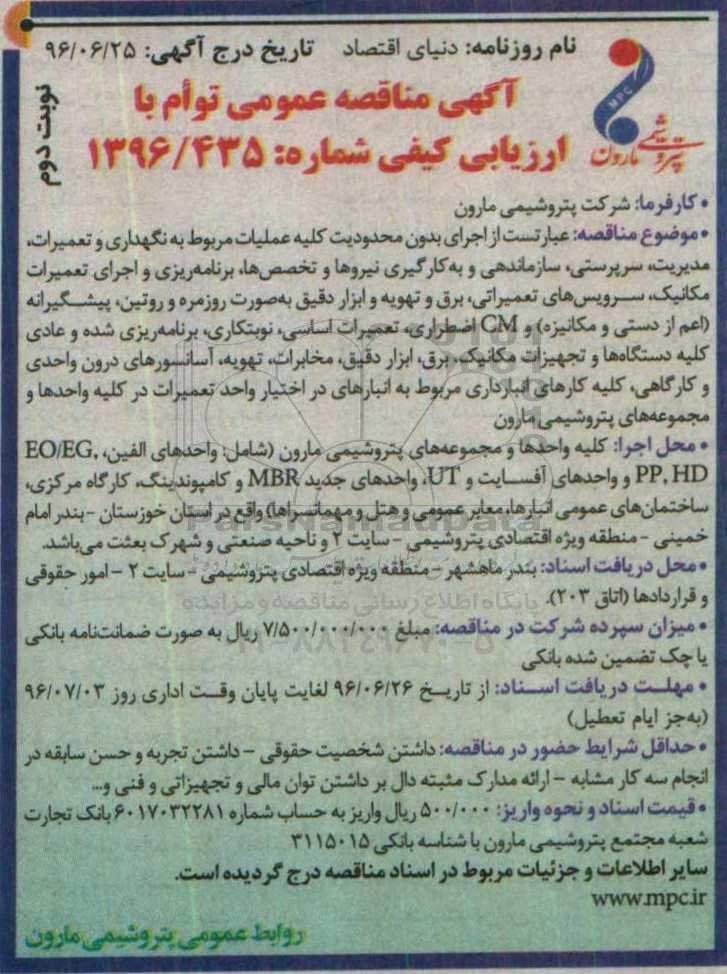 نام روزنامه: دنیای اقتصاد تاریخ درج آگهی: ۹۶/۰۶/۲۵
MPC
پتروشیمی مارون
نوبت دوم
آگهی مناقصه عمومی توأم با
ارزیابی کیفی شماره: ۱۳۹۶/۴۳۵
• کارفرما: شرکت پتروشیمی مارون
• موضوع مناقصه: عبارتست از اجرای بدون محدودیت کلیه عملیات مربوط به نگهداری و تعمیرات،
مدیریت، سرپرستی، سازماندهی و به‌کارگیری نیروها و تخصص‌ها، برنامه‌ریزی و اجرای تعمیرات
مکانیک، سرویس‌های تعمیراتی، برق و تهویه و ابزار دقیق به‌صورت روزمره و روتین، پیشگیرانه
(اعم از دستی و مکانیزه) و CM اضطراری، تعمیرات اساسی، نوبتکاری، برنامه‌ریزی شده و عادی
کلیه دستگاه‌ها و تجهیزات مکانیک، برق، ابزار دقیق، مخابرات، تهویه، آسانسورهای درون واحدی
و کارگاهی، کلیه کارهای انبارداری مربوط به انبارهای در اختیار واحد تعمیرات در کلیه واحدها و
مجموعه‌های پتروشیمی مارون
• محل اجرا: کلیه واحدها و مجموعه‌های پتروشیمی مارون (شامل: واحدهای الفین، EO/EG,
PP, HD و واحدهای آفسایت و UT، واحدهای جدید MBR و کامپوندینگ، کارگاه مرکزی،
ساختمان‌های عمومی انبارها، معابر عمومی و هتل و مهمانسراها) واقع در استان خوزستان - بندر امام
خمینی - منطقه ویژه اقتصادی پتروشیمی - سایت ۲ و ناحیه صنعتی و شهرک بعثت می‌باشد.
• محل دریافت اسناد: بندر ماهشهر - منطقه ویژه اقتصادی پتروشیمی - سایت ۲ - امور حقوقی
و قراردادها (اتاق ۲۰۳).
• میزان سپرده شرکت در مناقصه: مبلغ ۷/۵۰۰/۰۰۰/۰۰۰ ریال به صورت ضمانت‌نامه بانکی
یا چک تضمین شده بانکی
• مهلت دریافت اسناد: از تاریخ ۹۶/۰۶/۲۶ لغایت پایان وقت اداری روز ۹۶/۰۷/۰۳
(به‌جز ایام تعطیل)
• حداقل شرایط حضور در مناقصه: داشتن شخصیت حقوقی - داشتن تجربه و حسن سابقه در
انجام سه کار مشابه - ارائه مدارک مثبته دال بر داشتن توان مالی و تجهیزاتی و فنی و...
• قیمت اسناد و نحوه واریز: ۵۰۰/۰۰۰ ریال واریز به حساب شماره ۶۰۱۷۰۳۲۲۸۱ بانک تجارت
شعبه مجتمع پتروشیمی مارون با شناسه بانکی ۳۱۱۵۰۱۵
سایر اطلاعات و جزئیات مربوط در اسناد مناقصه درج گردیده است.
www.mpc.ir
روابط عمومی پتروشیمی مارون
ParsNamadData
پایگاه اطلاع رسانی مناقصه و مزایده
۰۲۱-۸۸۳۴۹۶۷۰-۵